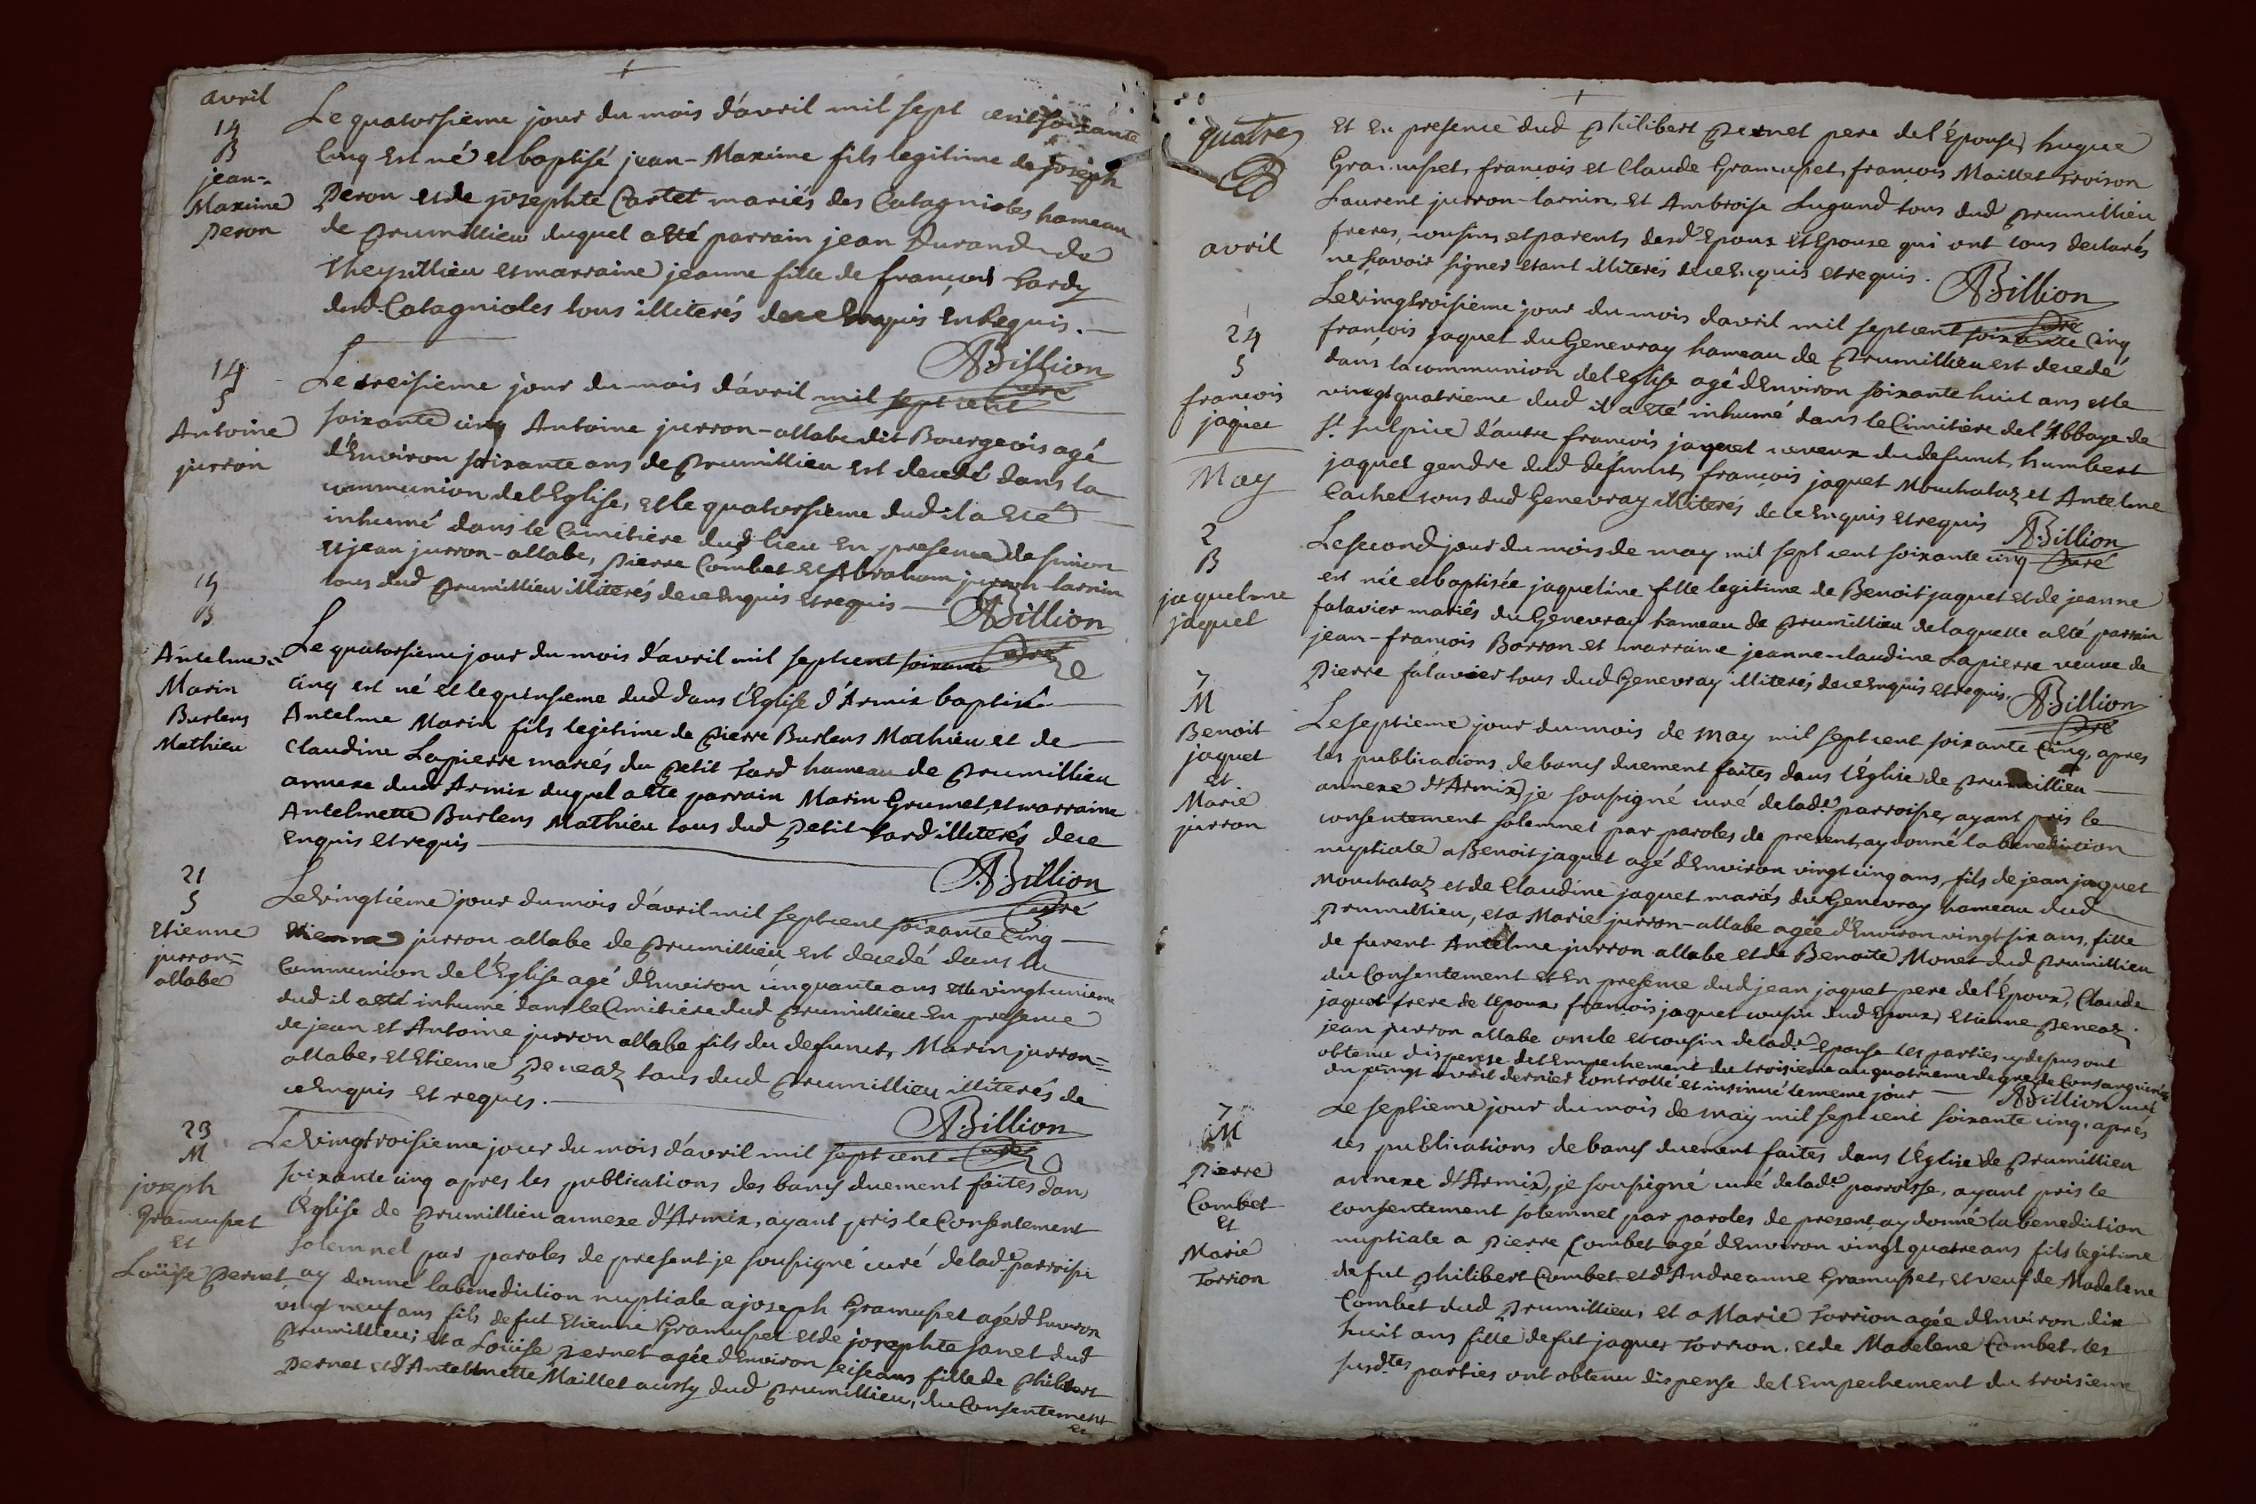 avril
14
B
jean-
Maxime
Peron
Le quatorsieme jour du mois d'avril mil sept cent soixante
Cinq est né et baptisé jean-Maxime fils legitime de joseph
Peron et de josephte Cartet mariés des Catagnioles hameau
de Prumillieu duquel a été parrain jean Durand de
Theyzillieu et marraine jeanne fille de françois tardy
dud. Catagnioles tous illiterés de ce Enquis En Requis.
ABillion
Curé
14
S
Antoine
jurron
Le treisieme jour du mois d'avril mil sept cent
soixante cinq Antoine jurron-allabe dit Bourgeois agé
d'Environ soixante ans de Prumillieu est decedé dans la
communion de l'Eglise, et le quatorsieme dud il a eté
inhumé dans le Cimitiere dud lieu en presence de simon
et jean jurron-allabe, Pierre Combet et Abraham jurron-tarnin
tous dud Prumillieu illiterés de ce enquis et requis
ABillion
Curé
15
B
Antelme
Marin
Burlens
Mathieu
Le quatorsieme jour du mois d'avril mil sept cent soixante
cinq est né et le quinsieme dud dans l'Eglise d'Armix baptisé
Antelme Marin fils legitime de Pierre Burlens Mathieu et de
Claudine Lapierre mariés du Petit Tard hameau de Prumillieu
annexe dud Armix duquel a été parrain Marin Grumet, et marraine
Antelmette Burlens Mathieu tous dud Petit tard illiterés de ce
enquis et requis
ABillion
Curé
21
S
Etienne
jurron=
allabe
Le vingtième jour du mois d'avril mil sept cent soixante Cinq
Etienne jurron allabe de Prumillieu est decedé dans la
Communion de l'Eglise agé d'Environ cinquante ans et le vingt unieme
dud il a été inhumé dans le Cimitiere dud Prumillieu En presence
de jean et Antoine jurron allabe fils du defunct, Marin jurron=
allabe, et Etienne Peneaz tous dud Prumillieu illiterés de
ce Enquis et requis.
ABillion
Curé
23
M
joseph
Gramusset
et
Loüise Pernet
Le vingt troisieme jour du mois d'avril mil sept cent
soixante cinq apres les publications des bancs duement faites dans
l'Eglise de Prumillieu annexe d'Armix, ayant pris le Consentement
solemnel par paroles de present je soussigné curé de lad.e parroisse
ay donné la benediction nuptiale a joseph Gramusset agé d'Environ
vingt neuf ans fils de fut Etienne Gramusset et de josephte sanet dud
Prumillieu; et a Loüise Pernet agée d'Environ seise ans fille de Philibert
Pernet et d'Antelmette Maillet aussy dud Prumillieu, du Consentement
et
quatre
avril
Et En presence dud Philibert Pernet pere de l'Epouse, hugue
Gramusset, françois et Claude Gramusset, françois Maillet Troison
Laurent jurron-tarnin, et Ambroise Lugand tous dud Prumillieu
freres, cousins et parents desd.s Epoux et Epouse qui ont tous declarés
ne sçavoir signer etant illiterés de ce Enquis et requis.
ABillion
Curé
24
S
françois
jaquet
Le vingt troisieme jour du mois d'avril mil sept cent soixante Cinq
françois jaquet du Genevray hameau de Prumillieu est decedé
dans la communion de l'Eglise agé d'Environ soixante huit ans et le
vingt quatrieme dud il a eté inhumé dans le Cimitière de l'Abbaye de
S.t sulpice d'autre françois jaquet neveux du defunct, humbert
jaquet gendre dud defunct, françois jaquet Mouchataz et Antelme
Cachet tous dud Genevray illiterés de ce enquis et requis
ABillion
Curé
May
2
B
jaqueline
jaquet
Le second jour du mois de may mil sept cent soixante cinq
est née et baptisée jaqueline fille legitime de Benoit jaquet et de jeanne
falavier mariés du Genevray hameau de Prumillieu de laquelle a été parrain
jean-françois Borron et marraine jeanne-claudine Lapierre veuve de
Pierre falavier tous dud Genevray illiterés de ce enquis et requis.
ABillion
Curé
7
M
Benoit
jaquet
et
Marie
jurron
Le septieme jour du mois de may mil sept cent soixante Cinq, apres
les publications de bancs duement faites dans l'Eglise de Prumillieu
annexe d'Armix, je soussigné curé de lad.e parroisse, ayant pris le
consentement solemnel par paroles de present, ay donné la benediction
nuptiale a Benoit jaquet agé d'Environ vingt cinq ans, fils de jean jaquet
Mouchataz et de Claudine jaquet mariés du Genevray hameau dud
Prumillieu, et a Marie jurron-allabe agée d'Environ vingt six ans, fille
de furent Antelme jurron allabe et de Benoite Monet dud Prumillieu
du Consentement et En presence dud jean jaquet pere de l'Epoux, Claude
jaquet frere de l'epoux françois jaquet cousin dud Epoux, Etienne Peneaz
jean jurron allabe oncle et cousin de lad.e Epouse les parties cy dessus ont
obtenu dispense de l'Empechement du troisieme au quatrieme degré de Consanguinité
du vingt avril dernier controllé et insinué le meme jour
ABillion curé
7
M
Pierre
Combet
et
Marie
Torrion
Le septieme jour du mois de may mil sept cent soixante cinq, après
les publications de bancs duement faites dans l'Eglise de Prumillieu
annexe d'Armix, je soussigné curé de lad.e parroisse, ayant pris le
consentement solemnel par paroles de present, ay donné la benediction
nuptiale a Pierre Combet agé d'Environ vingt quatre ans fils legitime
de fut Philibert Combet et d'Andreanne Gramusset, et veuf de Madelene
Combet dud Prumillieu, et a Marie Torrion agée d'Environ dix
huit ans fille de fut jaques Torrion, et de Madelene Combet, les
susd.tes parties ont obtenu dispense de l'Empechement du troisieme